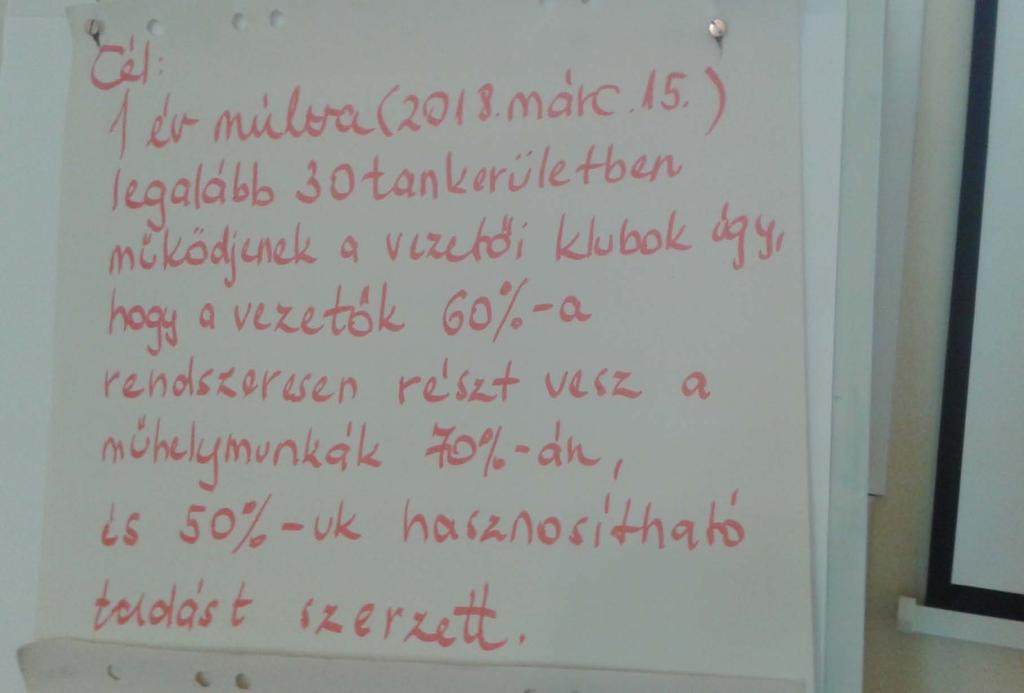 Cél:
1 év múlva (2018. márc. 15.)
legalább 30 tankerületben
működjenek a vezetői klubok úgy,
hogy a vezetők 60%-a
rendszeresen részt vesz a
műhelymunkák 70%-án,
és 50%-uk hasznosítható
tudást szerzett.